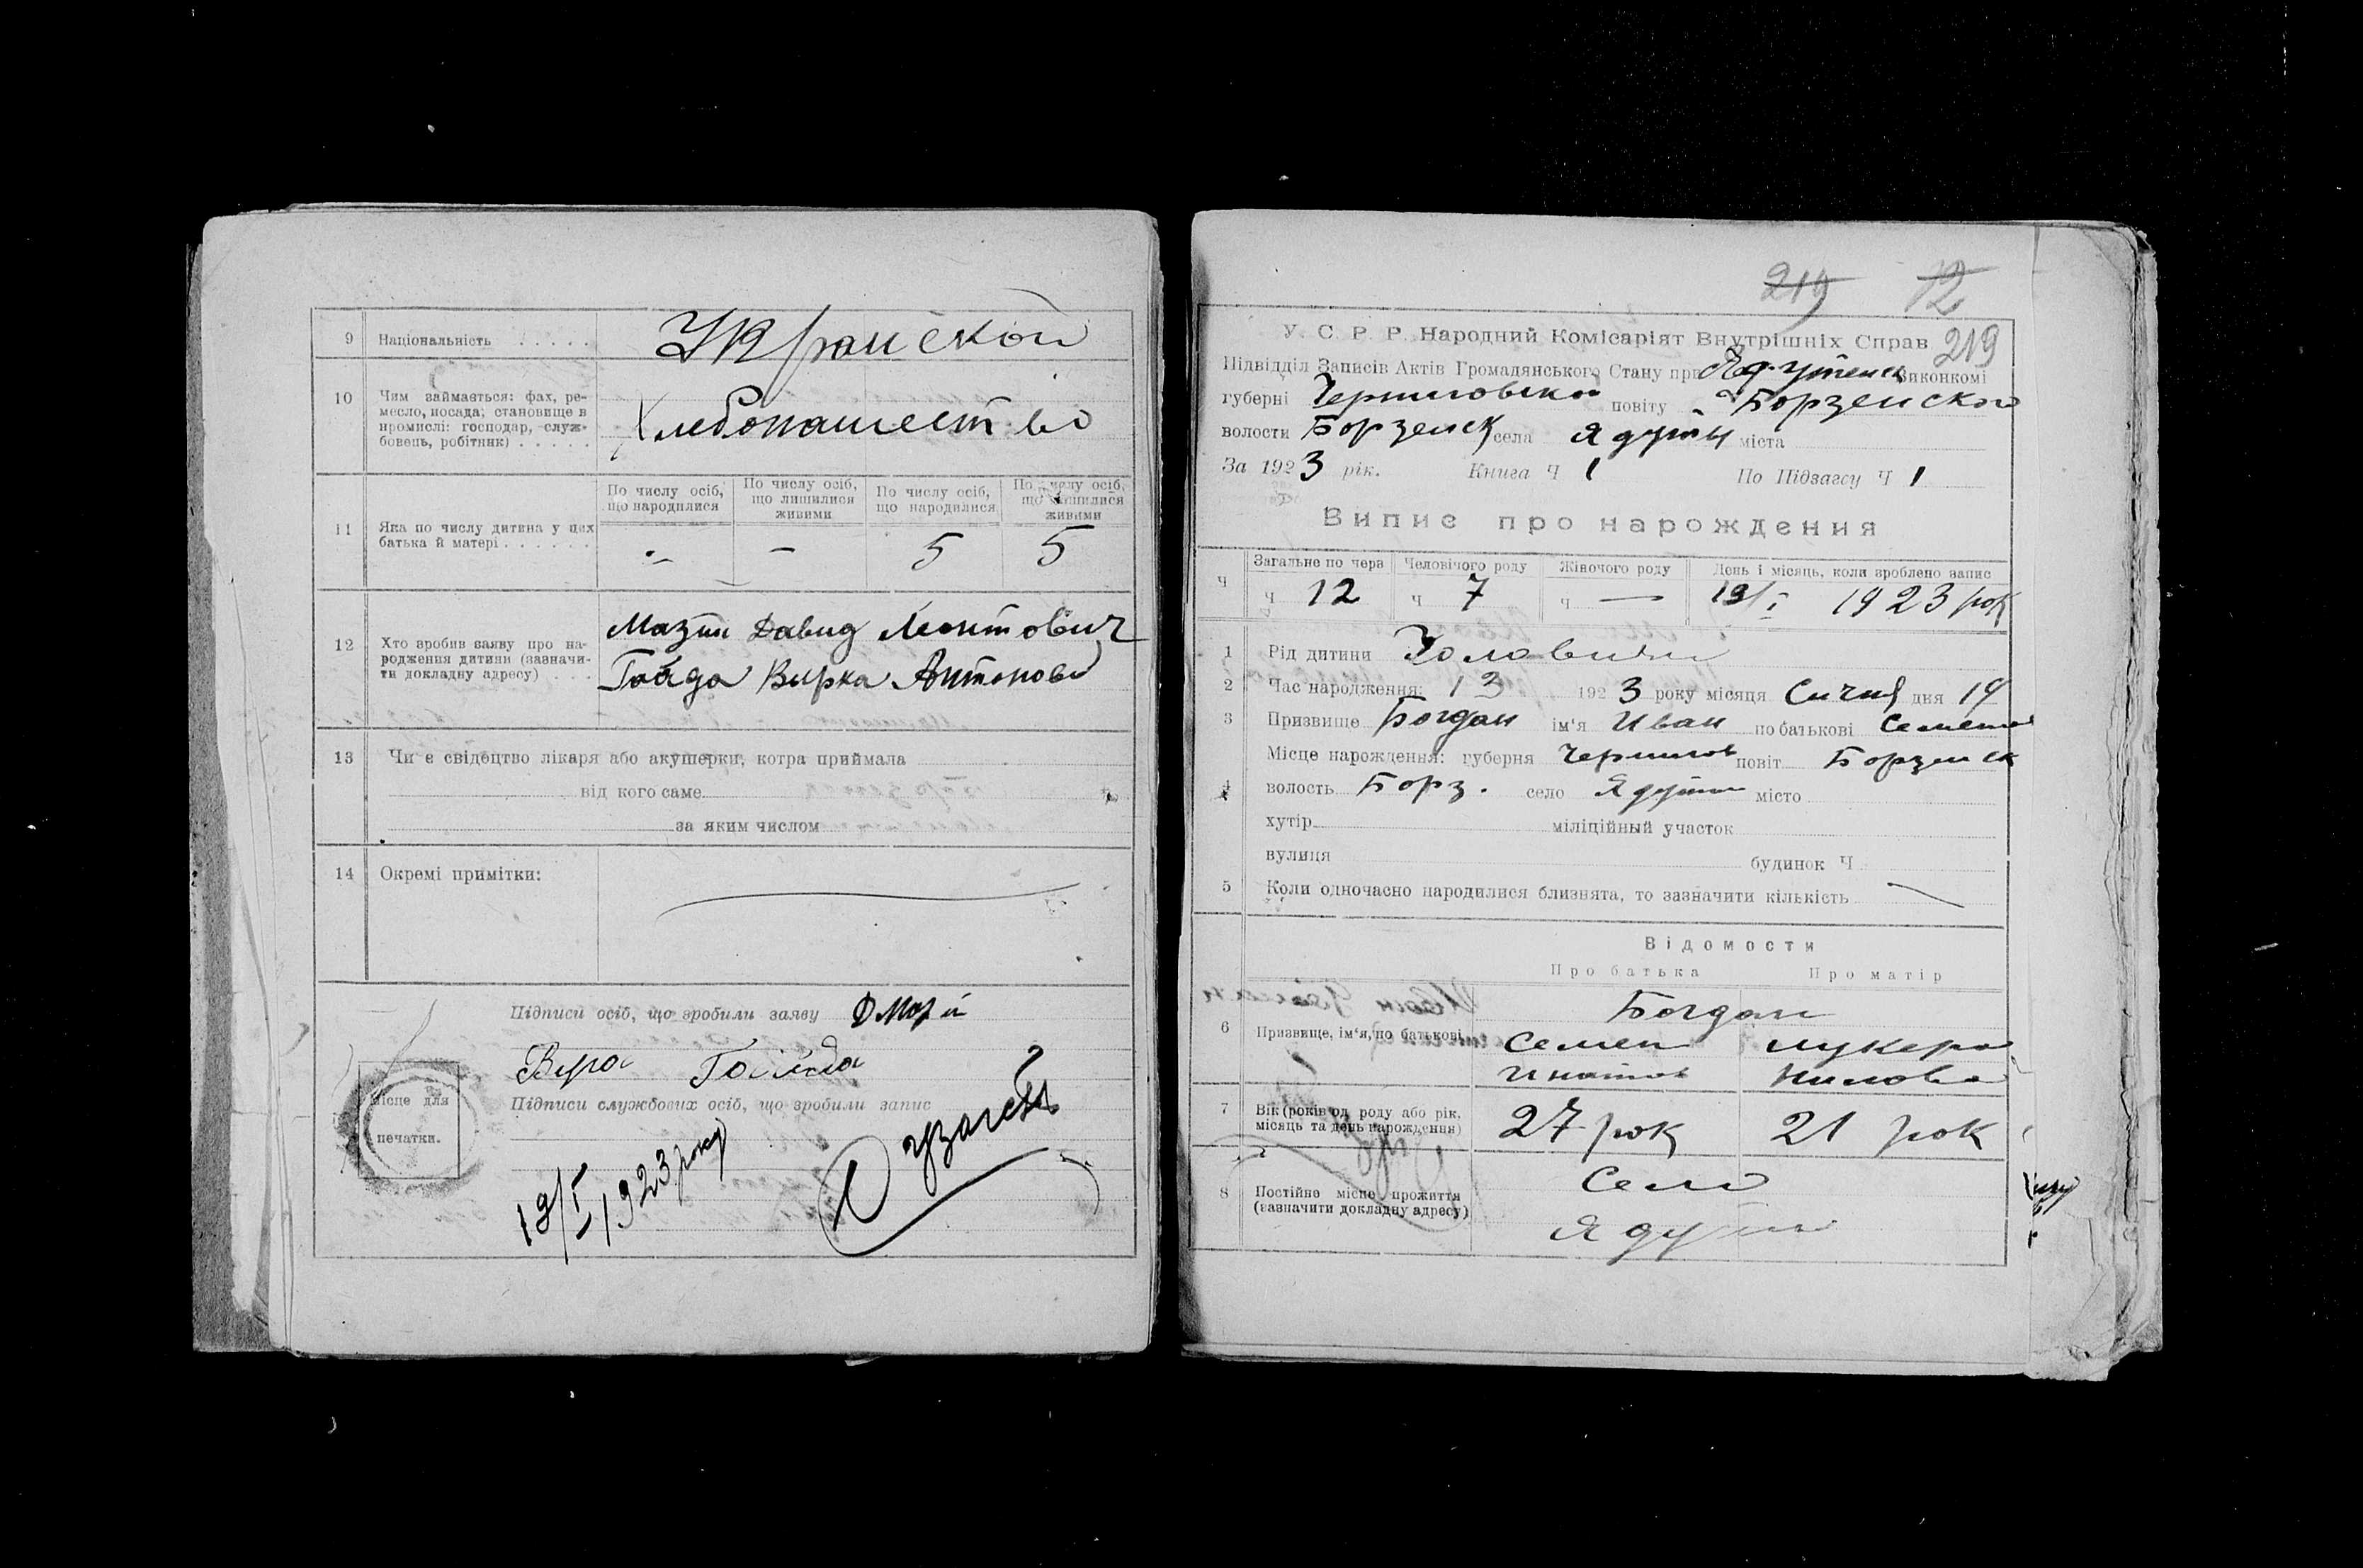 9 Національність . . . . . Украиской
10 Чим займається: фах, ре-
месло, посада; становище в
промислі: господар, служ-
бовець, робітник) . . . . .
Хлебопашество
По числу осіб, що народилися
По числу осіб, що лишилися живими
По числу осіб, що народилися
По числу осіб, що лишилися живими
11 Яка по числу дитина у цих
батька й матері . . . . . .
- - 5 5
12 Хто зробив заяву про на-
родження дитини (зазначи-
ти докладну адресу) . . .
Мазин Давид Леонтович
Гайда Вирка Антонов
13 Чи є свідоцтво лікаря або акушерки, котра приймала
від кого саме
за яким числом
14 Окремі примітки:
Підписи осіб, що зробили заяву
Вира Гайда
Підписи службових осіб, що зробили запис
Місце для
печатки.
19/I 1923 року
219 12
У. С. Р. Р. Народний Комісаріят Внутрішніх Справ 219
Підвідділ Записів Актів Громадянського Стану при Ядутенск Виконкомі
губерні Черниговской повіту Борзенского
волости Борзенск села Ядуты міста
За 1923 рік. Книга Ч 1 По Підзагсу Ч 1
Випис про нарождення
Ч Загальне по черв Человічого роду Жіночого роду День і місяць, коли зроблено запис
ч 12 ч 7 ч — 19/I 1923 рок
1 Рід дитини
2 Час народження: 13 1923 року місяця Сичня дня 19
3 Призвище Богдан ім'я Иван по батькові Семенов
Місце нарождення: губерня Чернигов повіт Борзенск
4 волость Борз. село Ядуты місто
хутір міліційный участок
вулиця будинок Ч
5 Коли одночасно народилися близнята, то зазначити кількість —
Відомости
Про батька Про матір
Богдан
6 Призвище, ім'я, по батькові Семен Лукера
Игнатов Нилова
7 Вік (років од роду або рік,
місяць та день народження)
27 рок 21 рок
8 Постійне місце прожиття
(зазначити докладну адресу)
Село
Ядуты